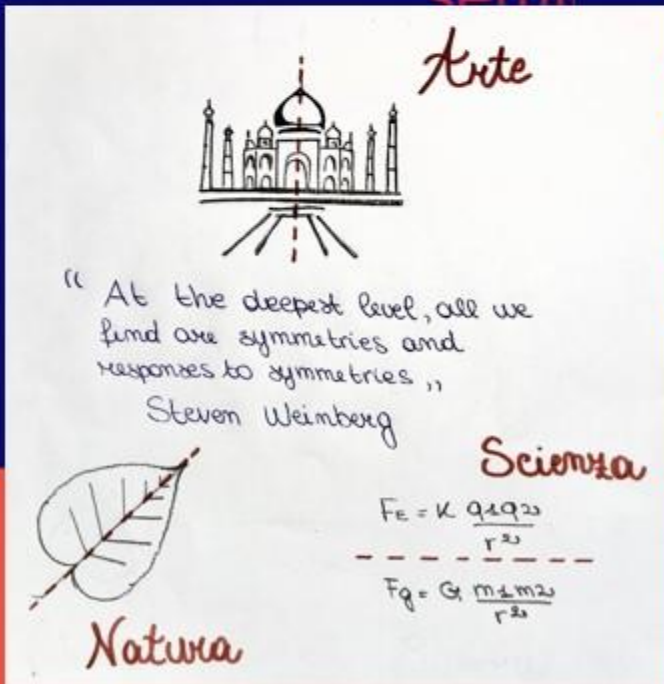 Arte
“ At the deepest level, all we
find are symmetries and
responses to symmetries „
Steven Weinberg
Scienza
FE = K q1q2
r2
Fg = G m1m2
r2
Natura